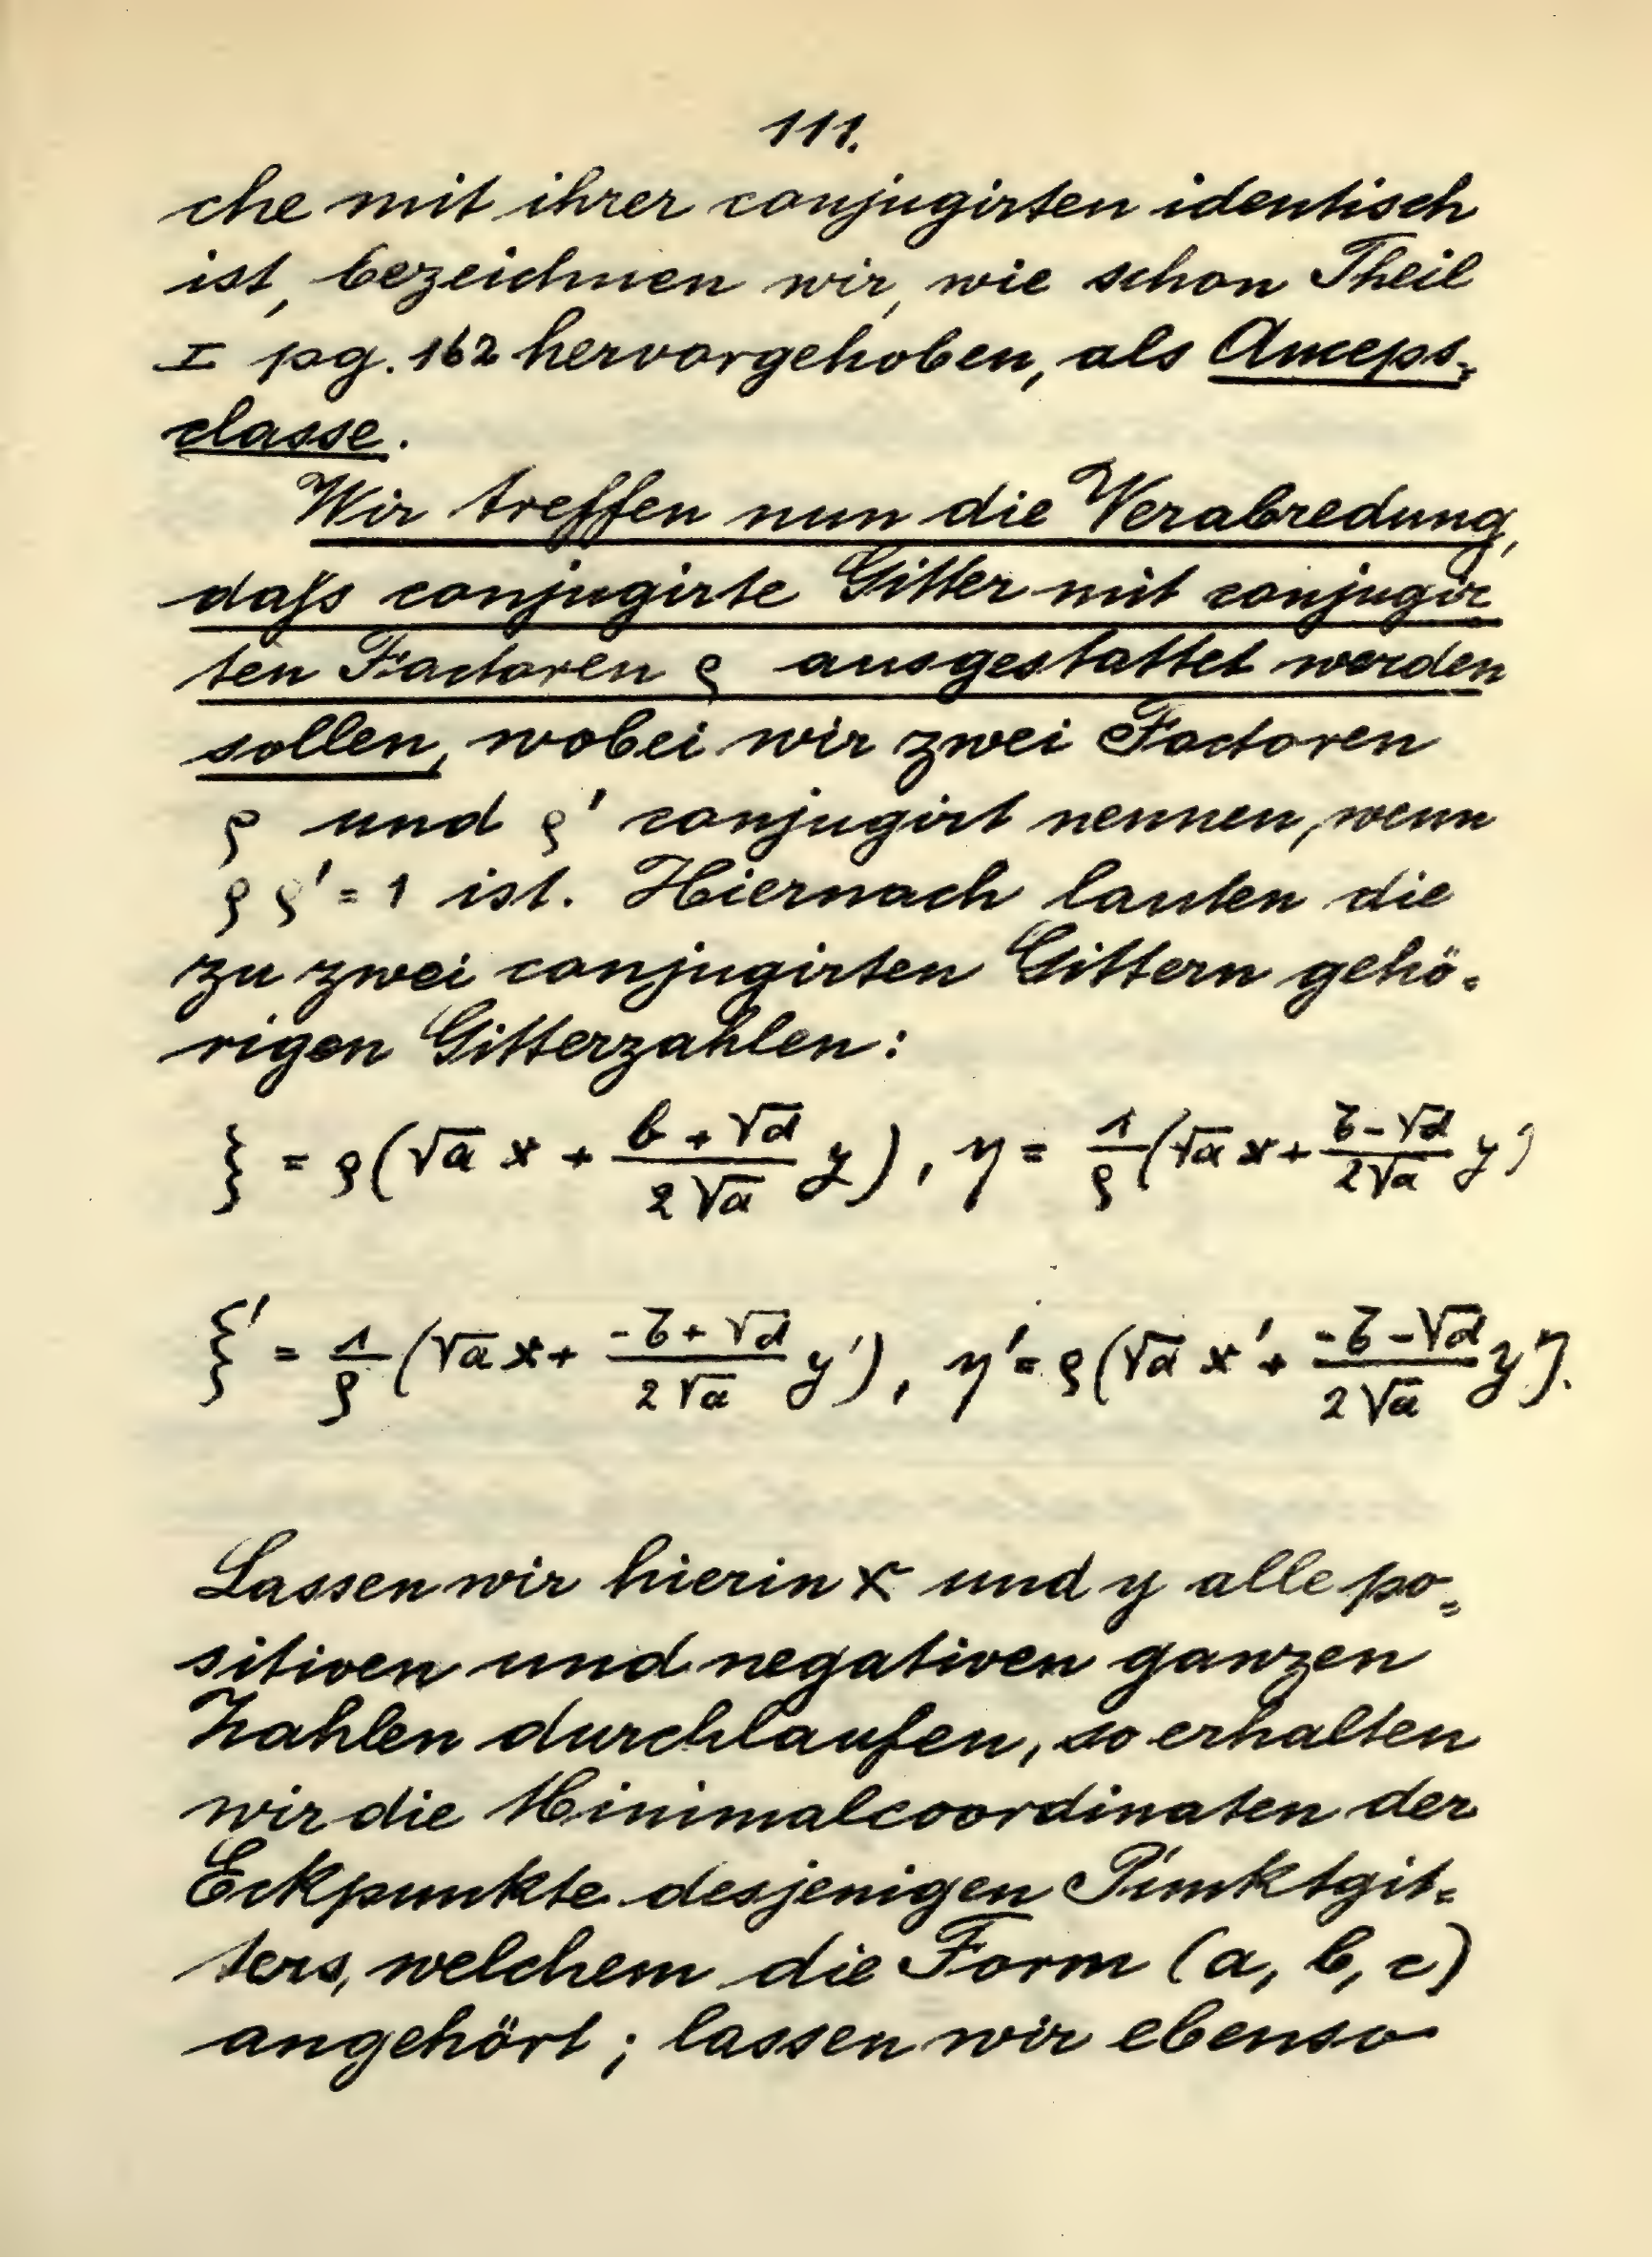 111.
che mit ihrer conjugirten identisch
ist, bezeichnen wir, wie schon Theil
I pg. 162 hervorgehoben, als Anceps-
classe.
Wir treffen nun die Verabredung,
daß conjugirte Gitter mit conjugir
ten Factoren ρ ausgestattet werden
sollen, wobei wir zwei Factoren
ρ und ρ' conjugirt nennen, wenn
ρ ρ' = 1 ist. Hiernach lauten die
zu zwei conjugirten Gittern gehö-
rigen Gitterzahlen:
ξ = ρ(√a x + (b + √d)/(2√a) y), η = 1/ρ (√a x + (b - √d)/(2√a) y)
ξ' = 1/ρ (√a x + (-b + √d)/(2√a) y'), η' = ρ(√a x' + (-b - √d)/(2√a) y').
Lassen wir hierin x und y alle po=
sitiven und negativen ganzen
Zahlen durchlaufen, so erhalten
wir die Minimalcoordinaten der
Eckpunkte desjenigen Punktgit=
ters, welchem die Form (a, b, c)
angehört; lassen wir ebenso